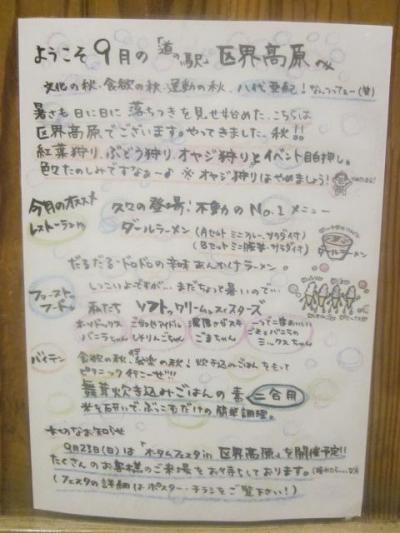 ようこそ 9月の「道の駅」区界高原へ
文化の秋、食欲の秋、運動の秋、八代亜紀！なんつってー(笑)
暑さも日に日に落ちつきを見せ始めた、こちらは
区界高原でございます。やってきました、秋!!
紅葉狩り、ぶどう狩り、オヤジ狩りとイベント目白押し。
色々たのしみですなぁーよ ※オヤジ狩りはやめましょう！
今月のオススメ
レストーラン
久々の登場！不動のNo.1メニュー
ダールラーメン (Aセット ミニカレー、サラダ付)
(Bセット ミニ豚丼、サラダ付)
ダールラーメン
だるだる・ドロドロの辛味あんかけラーメン。
ファースト・フード
しつこいようですが…まだちょって暑いので…
私たち ソフトクリームシスターズ
バニラちゃん
ごまちゃん
ミックスちゃん
バイテン
食欲の秋、行楽の秋！炊き込みごはんをもって
ピクニック行こーぜ!!!
舞茸炊き込みごはんの素 二合用
米を研いで、ぶっこむだけの簡単調理。
大切なお知らせ
9月23日(日)は「オータムフェスタin区界高原」を開催予定!!
たくさんのお客様のご来場をお待ちしております。
(フェスタの詳細はポスター・チラシをご覧下さい！)